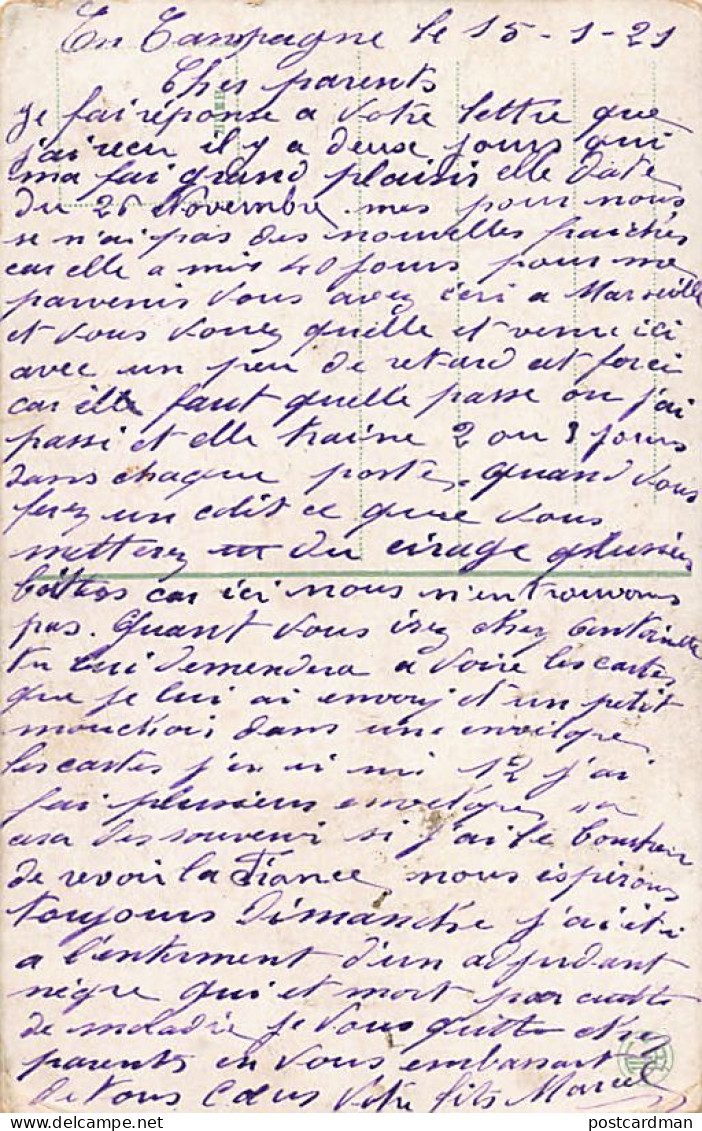 En Campagne le 15-1-21
Cher parents
je fai réponse a votre lettre que
j'ai recu il y a deux jours qui
ma fai grand plaisis elle date
du 26 Novembre mes pour nous
se n'ai pas des nouvelles fraiches
car elle a mis 40 jours pour me
parvenis Vous avez écri a Marseille
et vous voyez quelle et venue ici
avec un peu de retard et forci
car elle faut quelle passe ou j'ai
passi et elle traine 2 ou 3 jours
dans chaque porte. quand vous
ferez un colit ce que vous
metterez du cirage plusieus
boites car ici nous n'en trouvons
pas. Quant vous irez chez Antoinette
tu lui demendera a voire les cartes
que je lui ai envoy et un petit
mouchoi dans une envelope
les cartes j'en ai mi 12 j'ai
fai plusieus envelopes
des souvenir si j'ai le bonheur
de revoir la France nous espérons
toujours Dimanche j'ai été
a l'enterment d'un adjudant
nègre qui et mort par cuite
de maladie je vous quitte cher
parents en vous embassant
de tous cœus Votre fils Marcel
postcardman